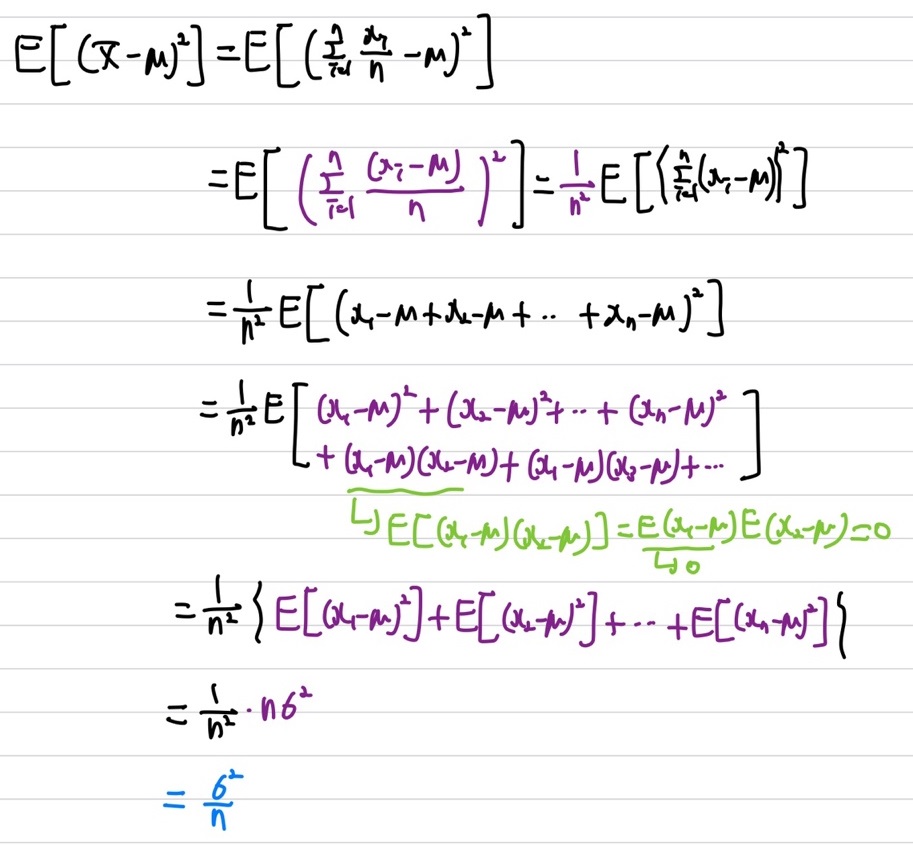 E[(x̄-μ)²] = E[(Σᵢ₌₁ⁿ xᵢ/n - μ)²]
= E[(Σᵢ₌₁ⁿ (xᵢ-μ)/n)²] = 1/n² E[(Σᵢ₌₁ⁿ(xᵢ-μ))²]
= 1/n² E[(x₁-μ+x₂-μ+‥+xₙ-μ)²]
= 1/n² E[(x₁-μ)²+(x₂-μ)²+‥+(xₙ-μ)²
+(x₁-μ)(x₂-μ)+(x₁-μ)(x₃-μ)+…]
↳E[(x₁-μ)(x₂-μ)]=E(x₁-μ)E(x₂-μ)=0
↳0
= 1/n² {E[(x₁-μ)²]+E[(x₂-μ)²]+…+E[(xₙ-μ)²]}
= 1/n² · nσ²
= σ²/n